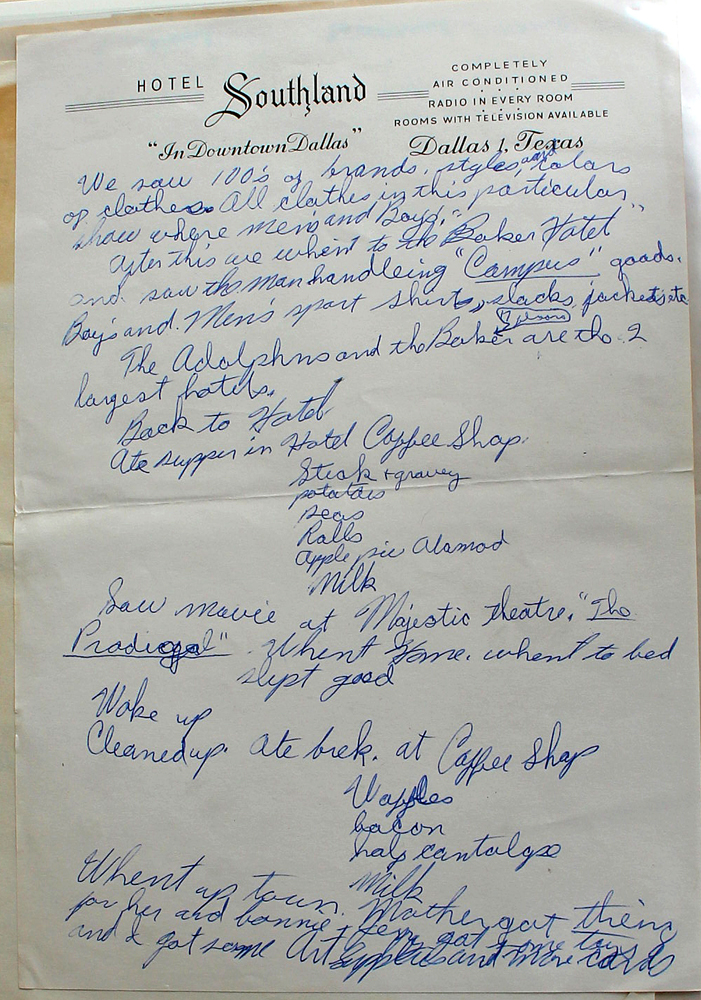 HOTEL Southland
"In Downtown Dallas"
COMPLETELY
AIR CONDITIONED
RADIO IN EVERY ROOM
ROOMS WITH TELEVISION AVAILABLE
Dallas 1, Texas
We saw 100's of brands, styles, and colors
of clothes. All clothes in this particular
show where men's and Boys.
After this we whent to the "Baker Hotel"
and saw the man handleing "Campus" goods.
Boy's and Men's sport shirts, slacks, jackets, etc
The Adolphns and the Baker are the 2
largest hotels.
Back to Hotel
Ate supper in Hotel Coffee Shop.
Steak + gravey
potatoes
peas
Rolls
apple pie Alamod
Milk
Saw movie at Majestic theatre. "The
Prodigal" Whent Home. whent to bed
slept good
Woke up
Cleaned up. Ate brek. at Coffee Shop
Waffles
bacon
half cantalope
Milk
Whent up town. Mother got thing
for her and bonnie, got some toys
and I got some Art Supplies and more cards